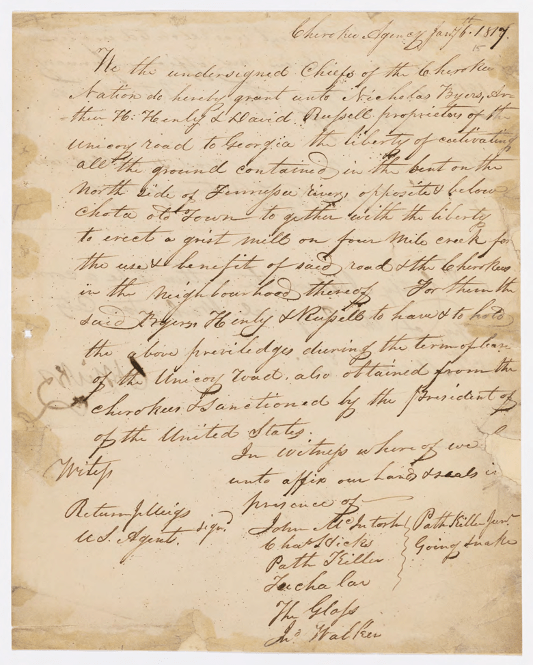 Cherokee Agency Jany 6th. 1817.
We the undersigned Chiefs of the Cherokee
Nation do hereby grant unto Nicholas Byers, Ar
thur H. Henly & David Russell proprietors of the
unicoy road to Georgia the liberty of cultivating
all the ground contained in the bent on the
North side of Tennessee river opposite & below
chota old Town to gether with the liberty
to erect a grist mill on four mile creek for
the use & benefit of said road & the Cherokees
in the neighbourhood thereof For them the
said Byers Henly & Russell to have & to hold
the above priviledges during the term of
of the Unicoy road. also obtained from the
cherokees & Sanctioned by the President of
of the United States.
In Witness where of we
Witness
unto affix our hands & seals in
presence of
Return J. Meigs
U.S. Agent.
signd
John McIntosh
Chas Hicks
Path Killer
Tuchalar
The Glass
Jno Walker
Path Killer Junr
Going snake